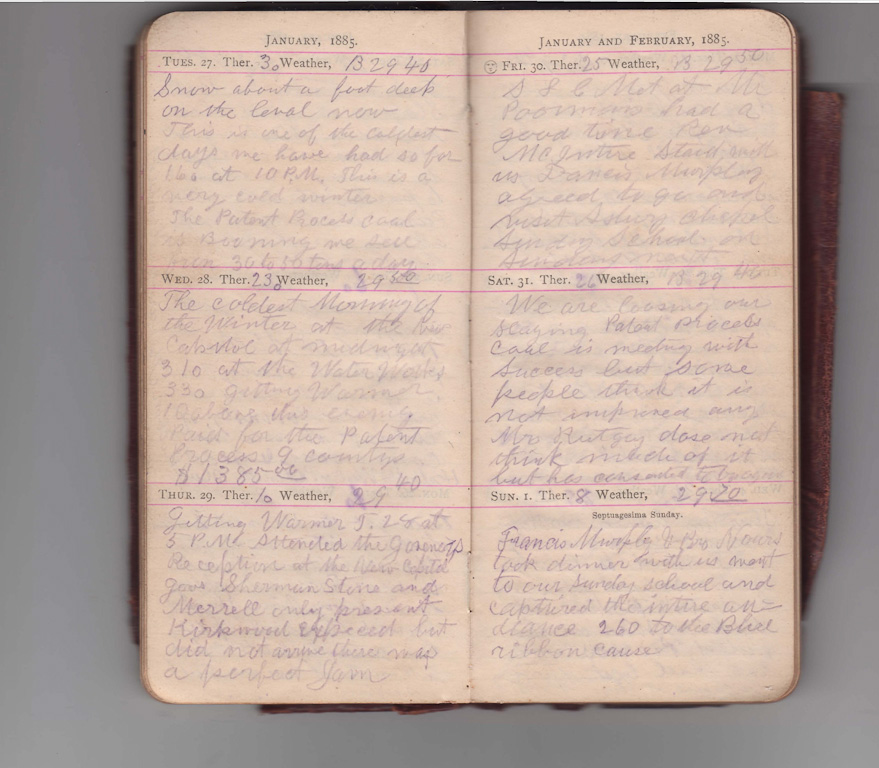 JANUARY, 1885.
TUES. 27. Ther. 30 Weather, B 29 40
Snow about a foot deep
on the leval now
This is one of the coldest
days we have had so far
16o at 10 P.M. This is a
very cold winter
The Patent Process coal
is Booming we sell
from 30 to 50 tons a day
WED. 28. Ther. 23o Weather, 29 50
The coldest Morning of
the Winter at the New
Capitol at midnight
310 at the Water Works
330 gitting Warmer
this evening
Paid for the Patent
Process 9 countys
$1385 00
THUR. 29. Ther. 10 Weather, 29 40
Gitting Warmer T. 28 at
5 P.M. Attended the Govenors
Reception at the New Capitol
govs Sherman Stone and
Merrell only present
Kirkwood Expeced but
did not arrive there was
a perfect Jam
JANUARY AND FEBRUARY, 1885.
FRI. 30. Ther. 25 Weather, B 29 50
S S C Met at Mr
Poormans had a
good time Rev
McIntire Staid with
us Francis Murphy
agreed to go and
visit Asbury Chapel
Sunday School on
SAT. 31. Ther. 26 Weather, B 29 40
We are loosing our
Patent Process
coal is meting with
success but some
people think it is
not improved any
Mr dose not
think much of it
but has consented to
SUN. 1. Ther. 8 Weather, 29 70
Septuagesima Sunday.
Francis Murphy & Bro
took dinner with us went
to our Sunday school and
captured the intire au-
diance 260 to the Blue
ribbon cause